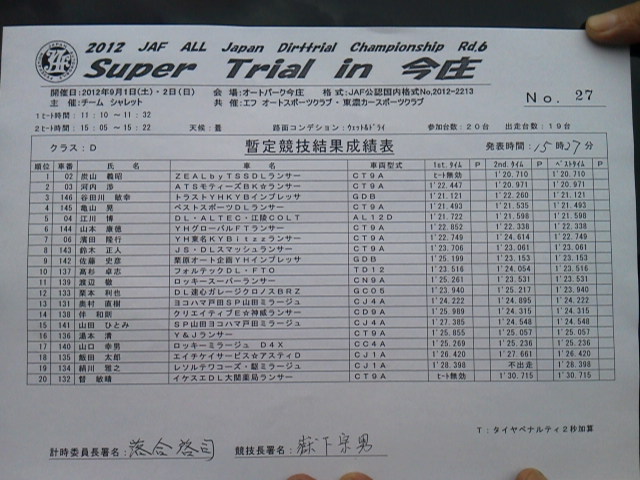 2012 JAF ALL Japan Dirttrial Championship Rd.6
Super Trial in 今庄
開催日:2012年9月1日(土)・2日(日) 会 場:オートパーク今庄 格 式:JAF公認国内格式No,2012-2213
主 催:チーム シャレット 共 催:エフ オートスポーツクラブ・東濃カースポーツクラブ
No. 27
1ヒート時間:11:10～11:32
2ヒート時間:15:05～15:22 天候:曇 路面コンデション:ウェット&ドライ 参加台数:20台 出走台数:19台
クラス:D 暫定競技結果成績表 発表時間:15時27分
順位 車番 氏 名 車 名 車両型式 1st.タイム P 2nd.タイム P ベストタイム P
1 02 炭山 義昭 ZEALbyTSSDLランサー CT9A ヒート無効 1'20.710 1'20.710
2 03 河内 渉 ATSモティーズBK☆ランサー CT9A 1'22.447 1'20.971 1'20.971
3 146 谷田川 敏幸 トラストYHKYBインプレッサ GDB 1'21.121 1'22.260 1'21.121
4 145 亀山 晃 ベストスポーツDLランサー CT9A 1'21.493 1'21.535 1'21.493
5 04 江川 博 DL・ALTEC・江陵COLT AL12D 1'21.722 1'21.598 1'21.598
6 144 山本 康徳 YHグローバルFTランサー CT9A 1'22.852 1'22.338 1'22.338
7 06 濱田 隆行 YH東名KYBitzzランサー CT9A 1'22.749 1'24.614 1'22.749
8 143 鈴木 正人 JS・DLスマッシュランサー CT9A 1'23.706 1'23.061 1'23.061
9 142 佐藤 史彦 栗原オート企画YHインプレッサ GDB 1'25.199 1'23.153 1'23.153
10 137 高杉 卓志 フォルテックDL・FTO TD12 1'23.516 1'24.054 1'23.516
11 139 渡辺 徹 ロッキースーパーランサー CN9A 1'25.261 1'23.531 1'23.531
12 133 栗本 利也 DL遠心ガレージクロノスBRZ GC05 1'25.217 1'23.940 1'23.940
13 131 奥村 直樹 ヨコハマ戸田SP山田ミラージュ CJ4A 1'24.222 1'24.895 1'24.222
14 138 伴 和則 クリエイティブE☆神威ランサー CD9A 1'25.989 1'24.315 1'24.315
15 141 山田 ひとみ SP山田ヨコハマ戸田ミラージュ CJ4A 1'27.385 1'24.548 1'24.548
16 136 湯本 清 Y&Jランサー CT9A 1'25.855 1'25.057 1'25.057
17 140 山口 幸男 ロッキーミラージュ D4X CC4A 1'25.269 1'25.336 1'25.269
18 135 飯田 太郎 エイチケイサービス☆アスティD CJ1A 1'26.420 1'27.661 1'26.420
19 134 絹川 雅之 レソルテワコーズ・駆ミラージュ CJ1A 1'28.398 不出走 1'28.398
20 132 督 敏晴 イケスエDL大関薬局ランサー CT9A ヒート無効 1'30.715 1'30.715
T:タイヤペナルティ2秒加算
計時委員長署名:落合啓司 競技長署名:森下宗男